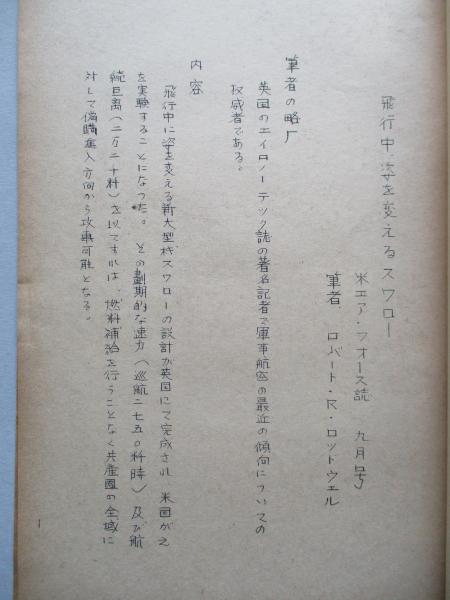 飛行中姿を変えるスワロー
米エア・フオース読 九月号
筆者 ロバート・R・ロットウェル
筆者の略厂
英国のエイロノーテック誌の著名記者で軍事航空の最近の傾向についての
权威者である。
内容
飛行中に姿を変える新大型机スワローの設計が英国にて完成され 米国がえ
を実験することになった。 その劃期的な速力(巡航二七五〇粁時)及び航
続巨离(二万二千粁)を以てすれば、燃料補給を行うことなく共産圏の全域に
対して偽購進入方向から攻撃可能となる。
1